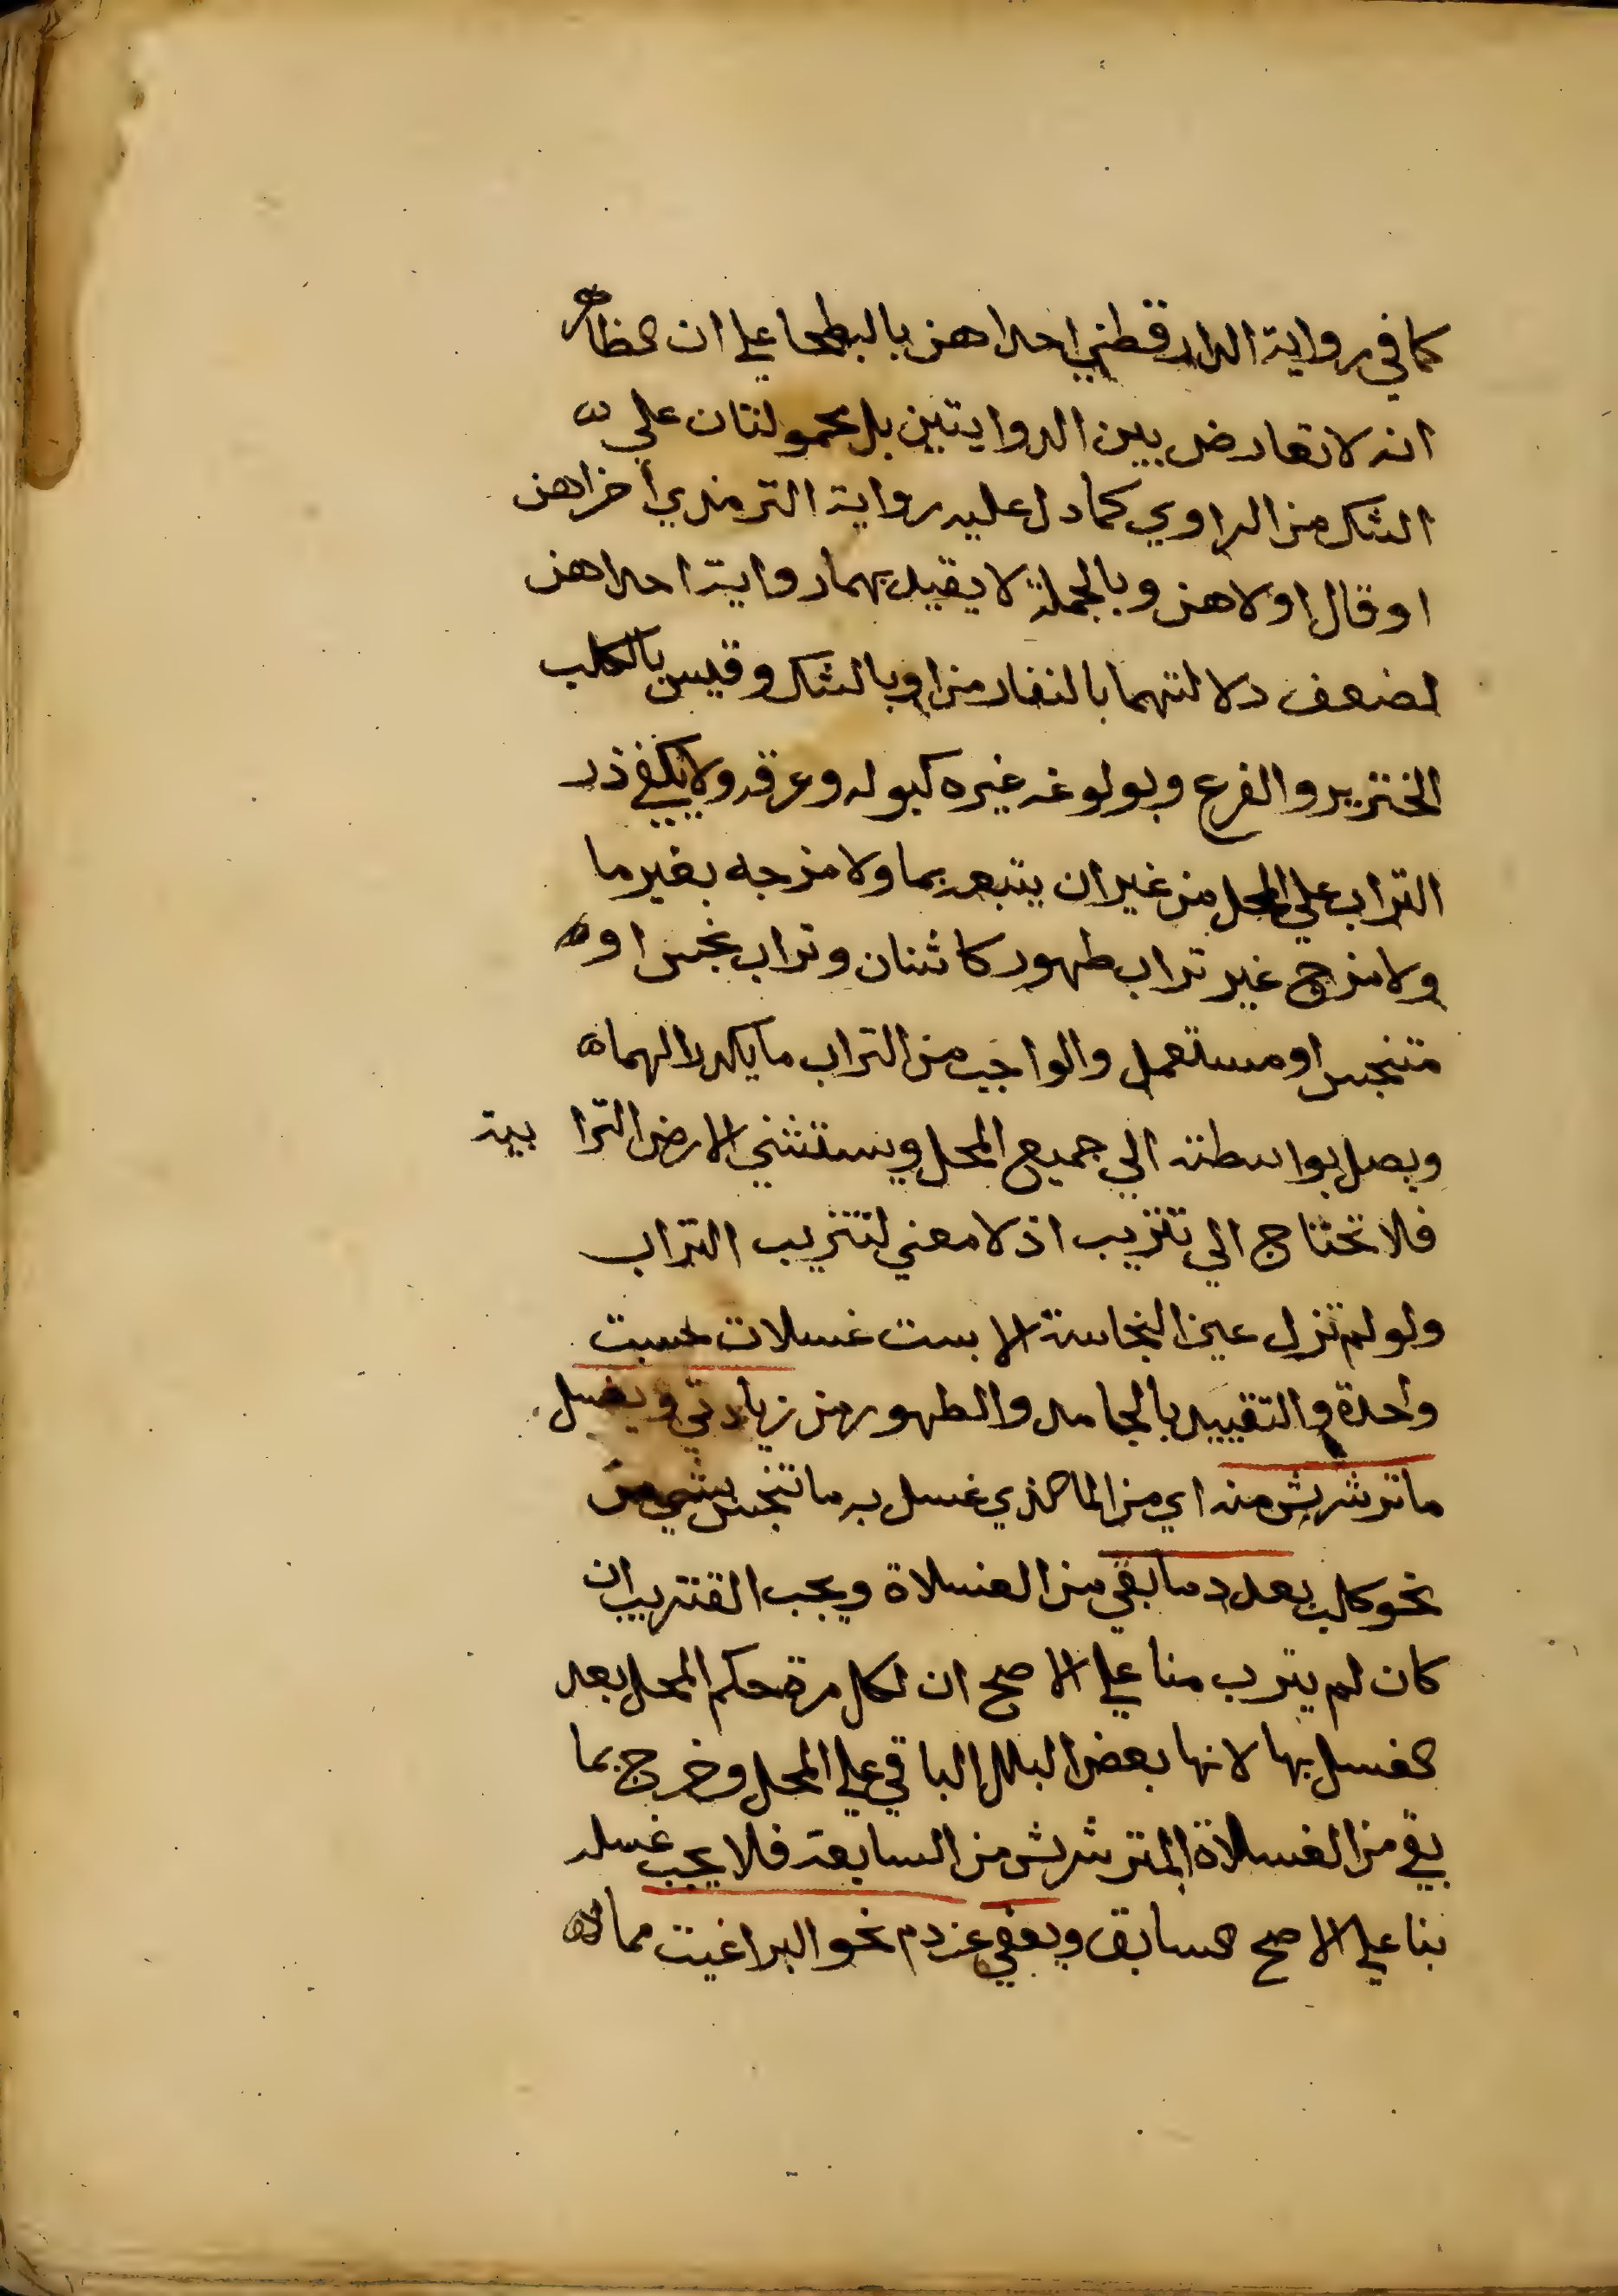 كما في رواية الدارقطني احداهن بالبطحا علي ان الظاهر
انه لا تعارض بين الروايتين بل محمولتان علي
الشك من الراوي كما دل عليه رواية الترمذي أخراهن
او قال اولاهن وبالجملة لا يقيد بهما رواية احداهن
لضعف دلالتهما بالتعارض او بالشك وقيس بالكلب
الخنزير والفرع وبولوغه غيره كبوله وعرقه ولا يكفي ذر
التراب علي المحل من غير ان يتبعه بما ولا مزجه بغير ما
ولا مزج غير تراب طهور كاشنان وتراب نجس او
متنجس او مستعمل والواجب من التراب ما يكدر الما
ويصل بواسطته الي جميع المحل ويستثني الارض الترا بية
فلا تحتاج الي تتريب اذ لا معني لتتريب التراب
ولو لم تزل عين النجاسة الا بست غسلات حسبت
واحدة والتقييد بالجامد والطهور من زيادتي ويغسل
ما ترشرش منه اي من الما الذي غسل به ما تنجس بشي من
نحو كلب بعدد ما بقي من الغسلاة ويجب التتريب ان
كان لم يترب منا علي الاصح ان لكل مرة حكم المحل بعد
الغسل بها لانها بعض البلل الباقي علي المحل وخرج بما
بقي من الغسلاة المترشرش من السابعة فلا يجب غسله
بنا علي الاصح السابق ويعفي عن دم نحو البراغيث مما لا